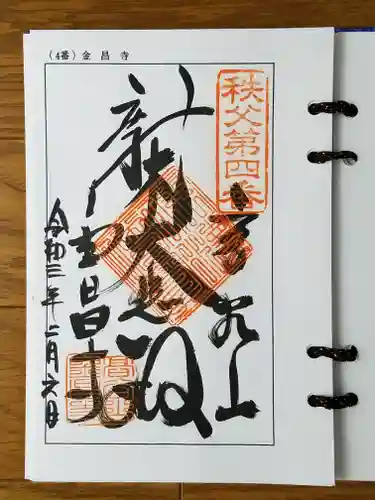 （4番）金昌寺
秩父第四番
高谷山
新木大悲殿
金昌寺
令和三年二月六日